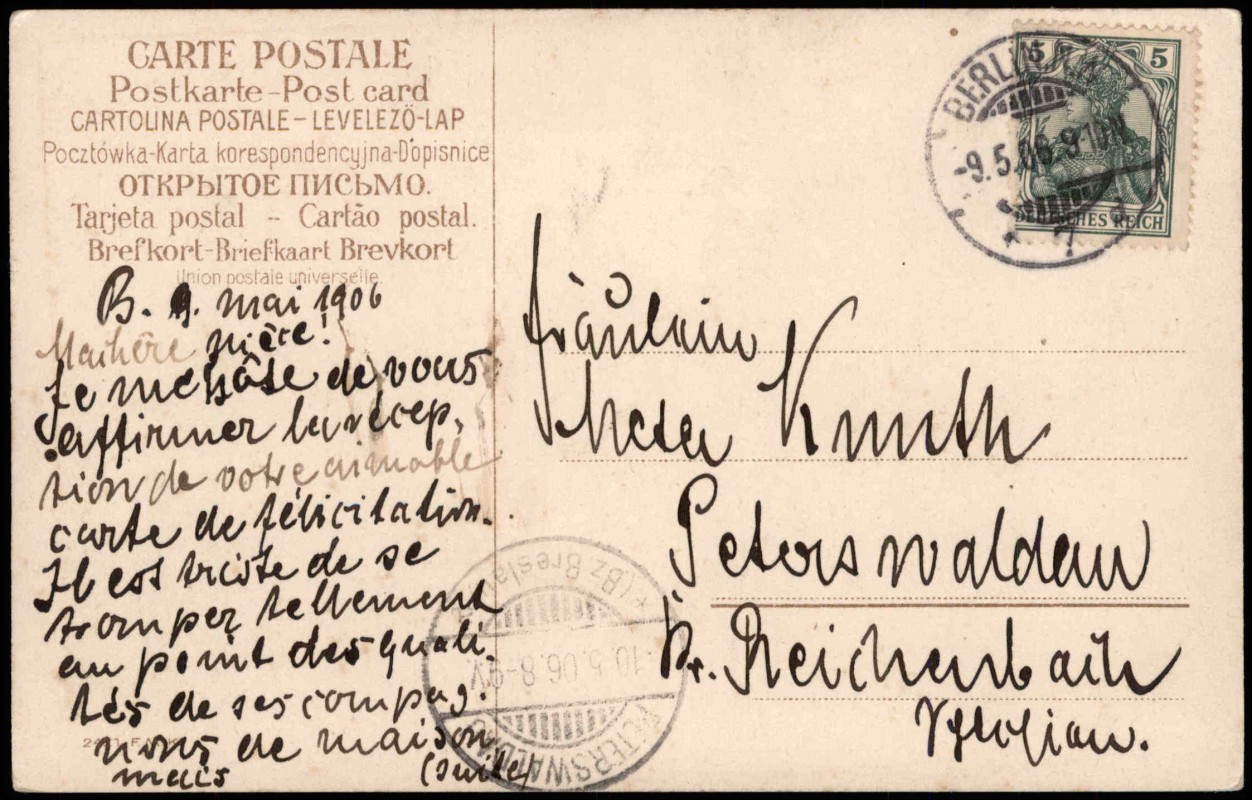 CARTE POSTALE
Postkarte-Post card
CARTOLINA POSTALE-LEVELEZÖ-LAP
Pocztówka-Karta korespondencyjna-Dopisnice
ОТКРЫТОЕ ПИСЬМО.
Tarjeta postal - Cartão postal.
Brefkort-Briefkaart Brevkort
Union postale universelle
B. 9. mai 1906
Machère nièce!
Je me hâte de vous
affirmer la récep-
tion de votre aimable
carte de félicitation.
Il est triste de se
tromper tellement
au point des quali-
tés de ses compag-
nons de maison
mais (suite)
BERLIN
-9.5.06.9-10N
* 7
5 5
DEUTSCHES REICH
Fräulein
Meta Knuth
Peterswaldau
Kr. Reichenbach
* (Bz Breslau)
10.5.06.8-9V.
PETERSWALDAU